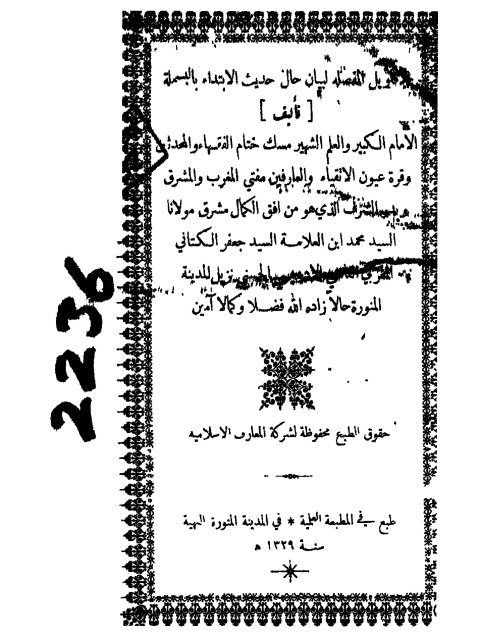 المفصله لبيان حال حديث الابتداء بالبسملة
[ تأليف ]
الامام الكبير والعلم الشهير مسك ختام الفقهاء والمحدثين
وقرة عيون الاتقياء والعارفين مفتي المغرب والمشرق
الذي هو من افق الكمال مشرق مولانا
السيد محمد ابن العلامة السيد جعفر الكتاني
الحسني نزيل المدينة
المنورة حالا زاده الله فضلا وكمالا آمين
حقوق الطبع محفوظة لشركة المعارف الاسلاميه
طبع في المطبعة العلمية * في المدينة المنورة البهية
سنة ١٣٢٩ ه
2236